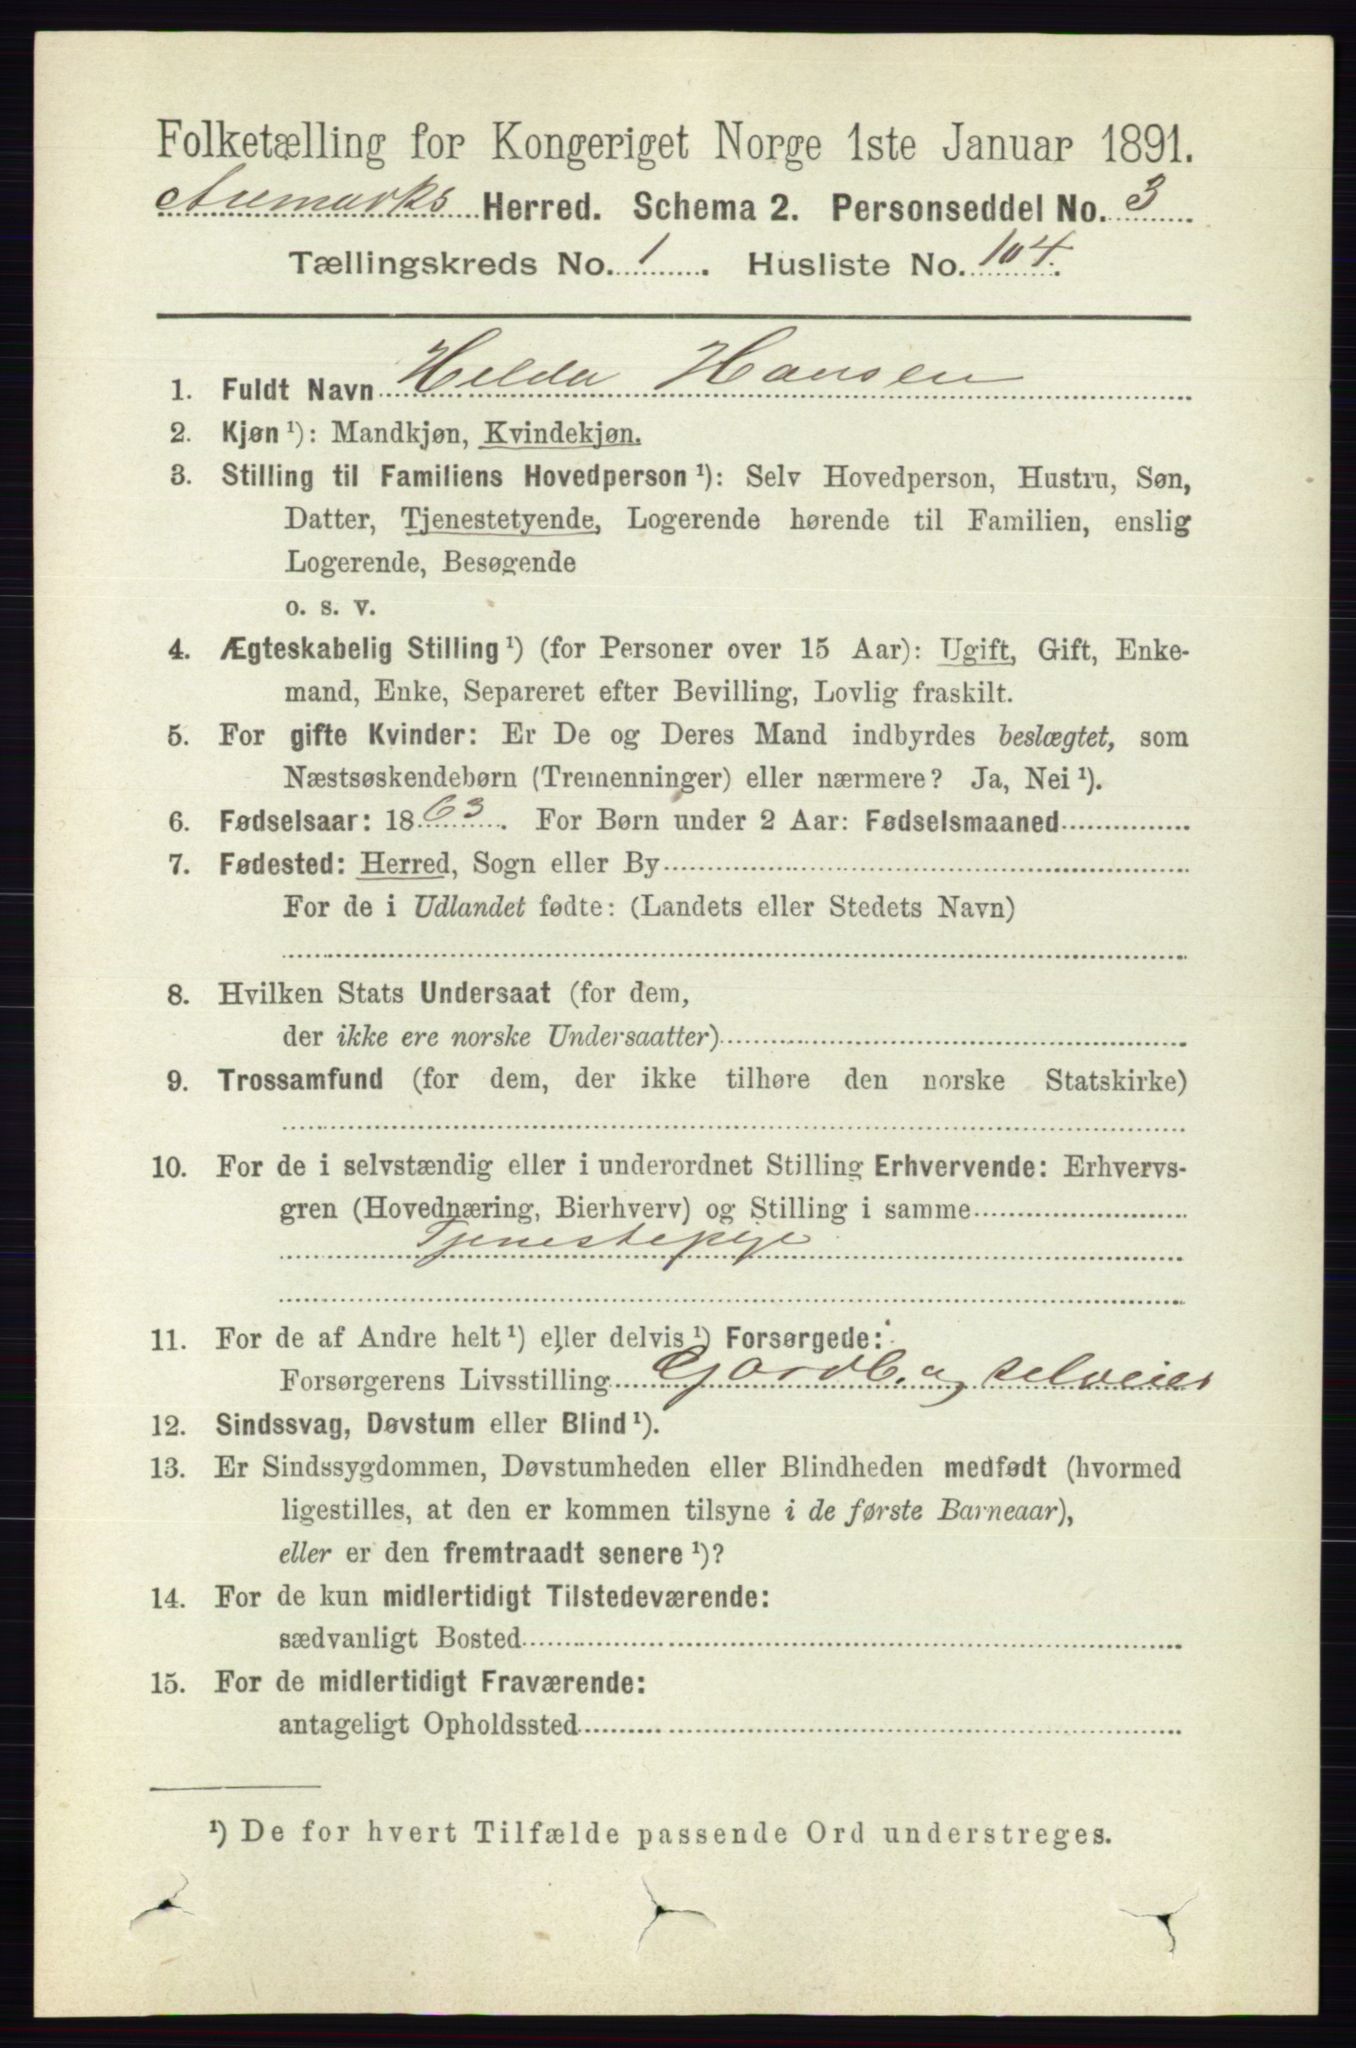 Folketælling for Kongeriget Norge 1ste Januar 1891.
Aremarks Herred. Schema 2. Personseddel No. 3
Tællingskreds No. 1. Husliste No. 104.
1. Fuldt Navn Helda Hansen
2. Kjøn ¹): Mandkjøn, Kvindekjøn.
3. Stilling til Familiens Hovedperson ¹): Selv Hovedperson, Hustru, Søn,
Datter, Tjenestetyende, Logerende hørende til Familien, enslig
Logerende, Besøgende
o. s. v.
4. Ægteskabelig Stilling ¹) (for Personer over 15 Aar): Ugift, Gift, Enke-
mand, Enke, Separeret efter Bevilling, Lovlig fraskilt.
5. For gifte Kvinder: Er De og Deres Mand indbyrdes beslægtet, som
Næstsøskendebørn (Tremenninger) eller nærmere? Ja, Nei ¹).
6. Fødselsaar: 1863. For Børn under 2 Aar: Fødselsmaaned
7. Fødested: Herred, Sogn eller By
For de i Udlandet fødte: (Landets eller Stedets Navn)
8. Hvilken Stats Undersaat (for dem,
der ikke ere norske Undersaatter)
9. Trossamfund (for dem, der ikke tilhøre den norske Statskirke)
10. For de i selvstændig eller i underordnet Stilling Erhvervende: Erhvervs-
gren (Hovednæring, Bierhverv) og Stilling i samme
Tjenestepige
11. For de af Andre helt ¹) eller delvis ¹) Forsørgede:
Forsørgerens Livsstilling Gardb. og selveier
12. Sindssvag, Døvstum eller Blind ¹).
13. Er Sindssygdommen, Døvstumheden eller Blindheden medfødt (hvormed
ligestilles, at den er kommen tilsyne i de første Barneaar),
eller er den fremtraadt senere ¹)?
14. For de kun midlertidigt Tilstedeværende:
sædvanligt Bosted
15. For de midlertidigt Fraværende:
antageligt Opholdssted
¹) De for hvert Tilfælde passende Ord understreges.